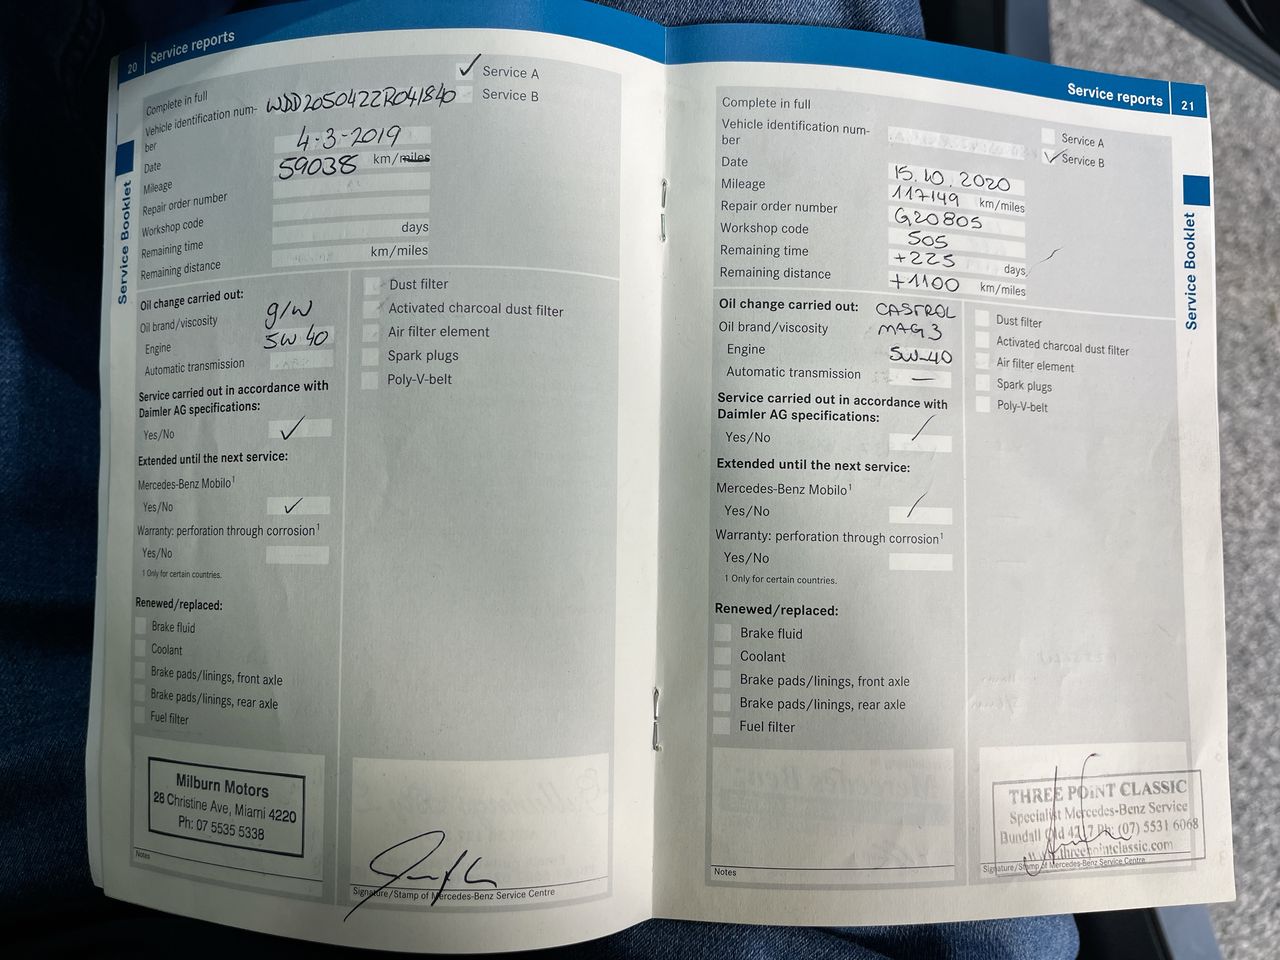 20 Service reports
Service A
Service B
Complete in full
Vehicle identification num-
ber
WDD2050422R041840
Date
4-3-2019
Mileage
59038 km/miles
Repair order number
Workshop code
Remaining time
days
Remaining distance
km/miles
Service Booklet
Oil change carried out:
Oil brand/viscosity
g/w
Engine
5W 40
Automatic transmission
Service carried out in accordance with
Daimler AG specifications:
Yes/No
Extended until the next service:
Mercedes-Benz Mobilo1
Yes/No
Warranty: perforation through corrosion1
Yes/No
1 Only for certain countries.
Dust filter
Activated charcoal dust filter
Air filter element
Spark plugs
Poly-V-belt
Renewed/replaced:
Brake fluid
Coolant
Brake pads/linings, front axle
Brake pads/linings, rear axle
Fuel filter
Milburn Motors
28 Christine Ave, Miami 4220
Ph: 07 5535 5338
Notes
Signature/Stamp of Mercedes-Benz Service Centre
Service reports 21
Complete in full
Vehicle identification num-
ber
Service A
Service B
Date
15.10.2020
Mileage
117149 km/miles
Repair order number
G20805
Workshop code
505
Remaining time
+225 days
Remaining distance
+1100 km/miles
Service Booklet
Oil change carried out:
CASTROL
Oil brand/viscosity
MAG 3
Engine
5W-40
Automatic transmission —
Service carried out in accordance with
Daimler AG specifications:
Yes/No
Extended until the next service:
Mercedes-Benz Mobilo1
Yes/No
Warranty: perforation through corrosion1
Yes/No
1 Only for certain countries.
Dust filter
Activated charcoal dust filter
Air filter element
Spark plugs
Poly-V-belt
Renewed/replaced:
Brake fluid
Coolant
Brake pads/linings, front axle
Brake pads/linings, rear axle
Fuel filter
THREE POINT CLASSIC
Specialist Mercedes-Benz Service
Bundall Qld 4217 Ph: (07) 5531 6068
Notes
Signature/Stamp of Mercedes-Benz Service Centre